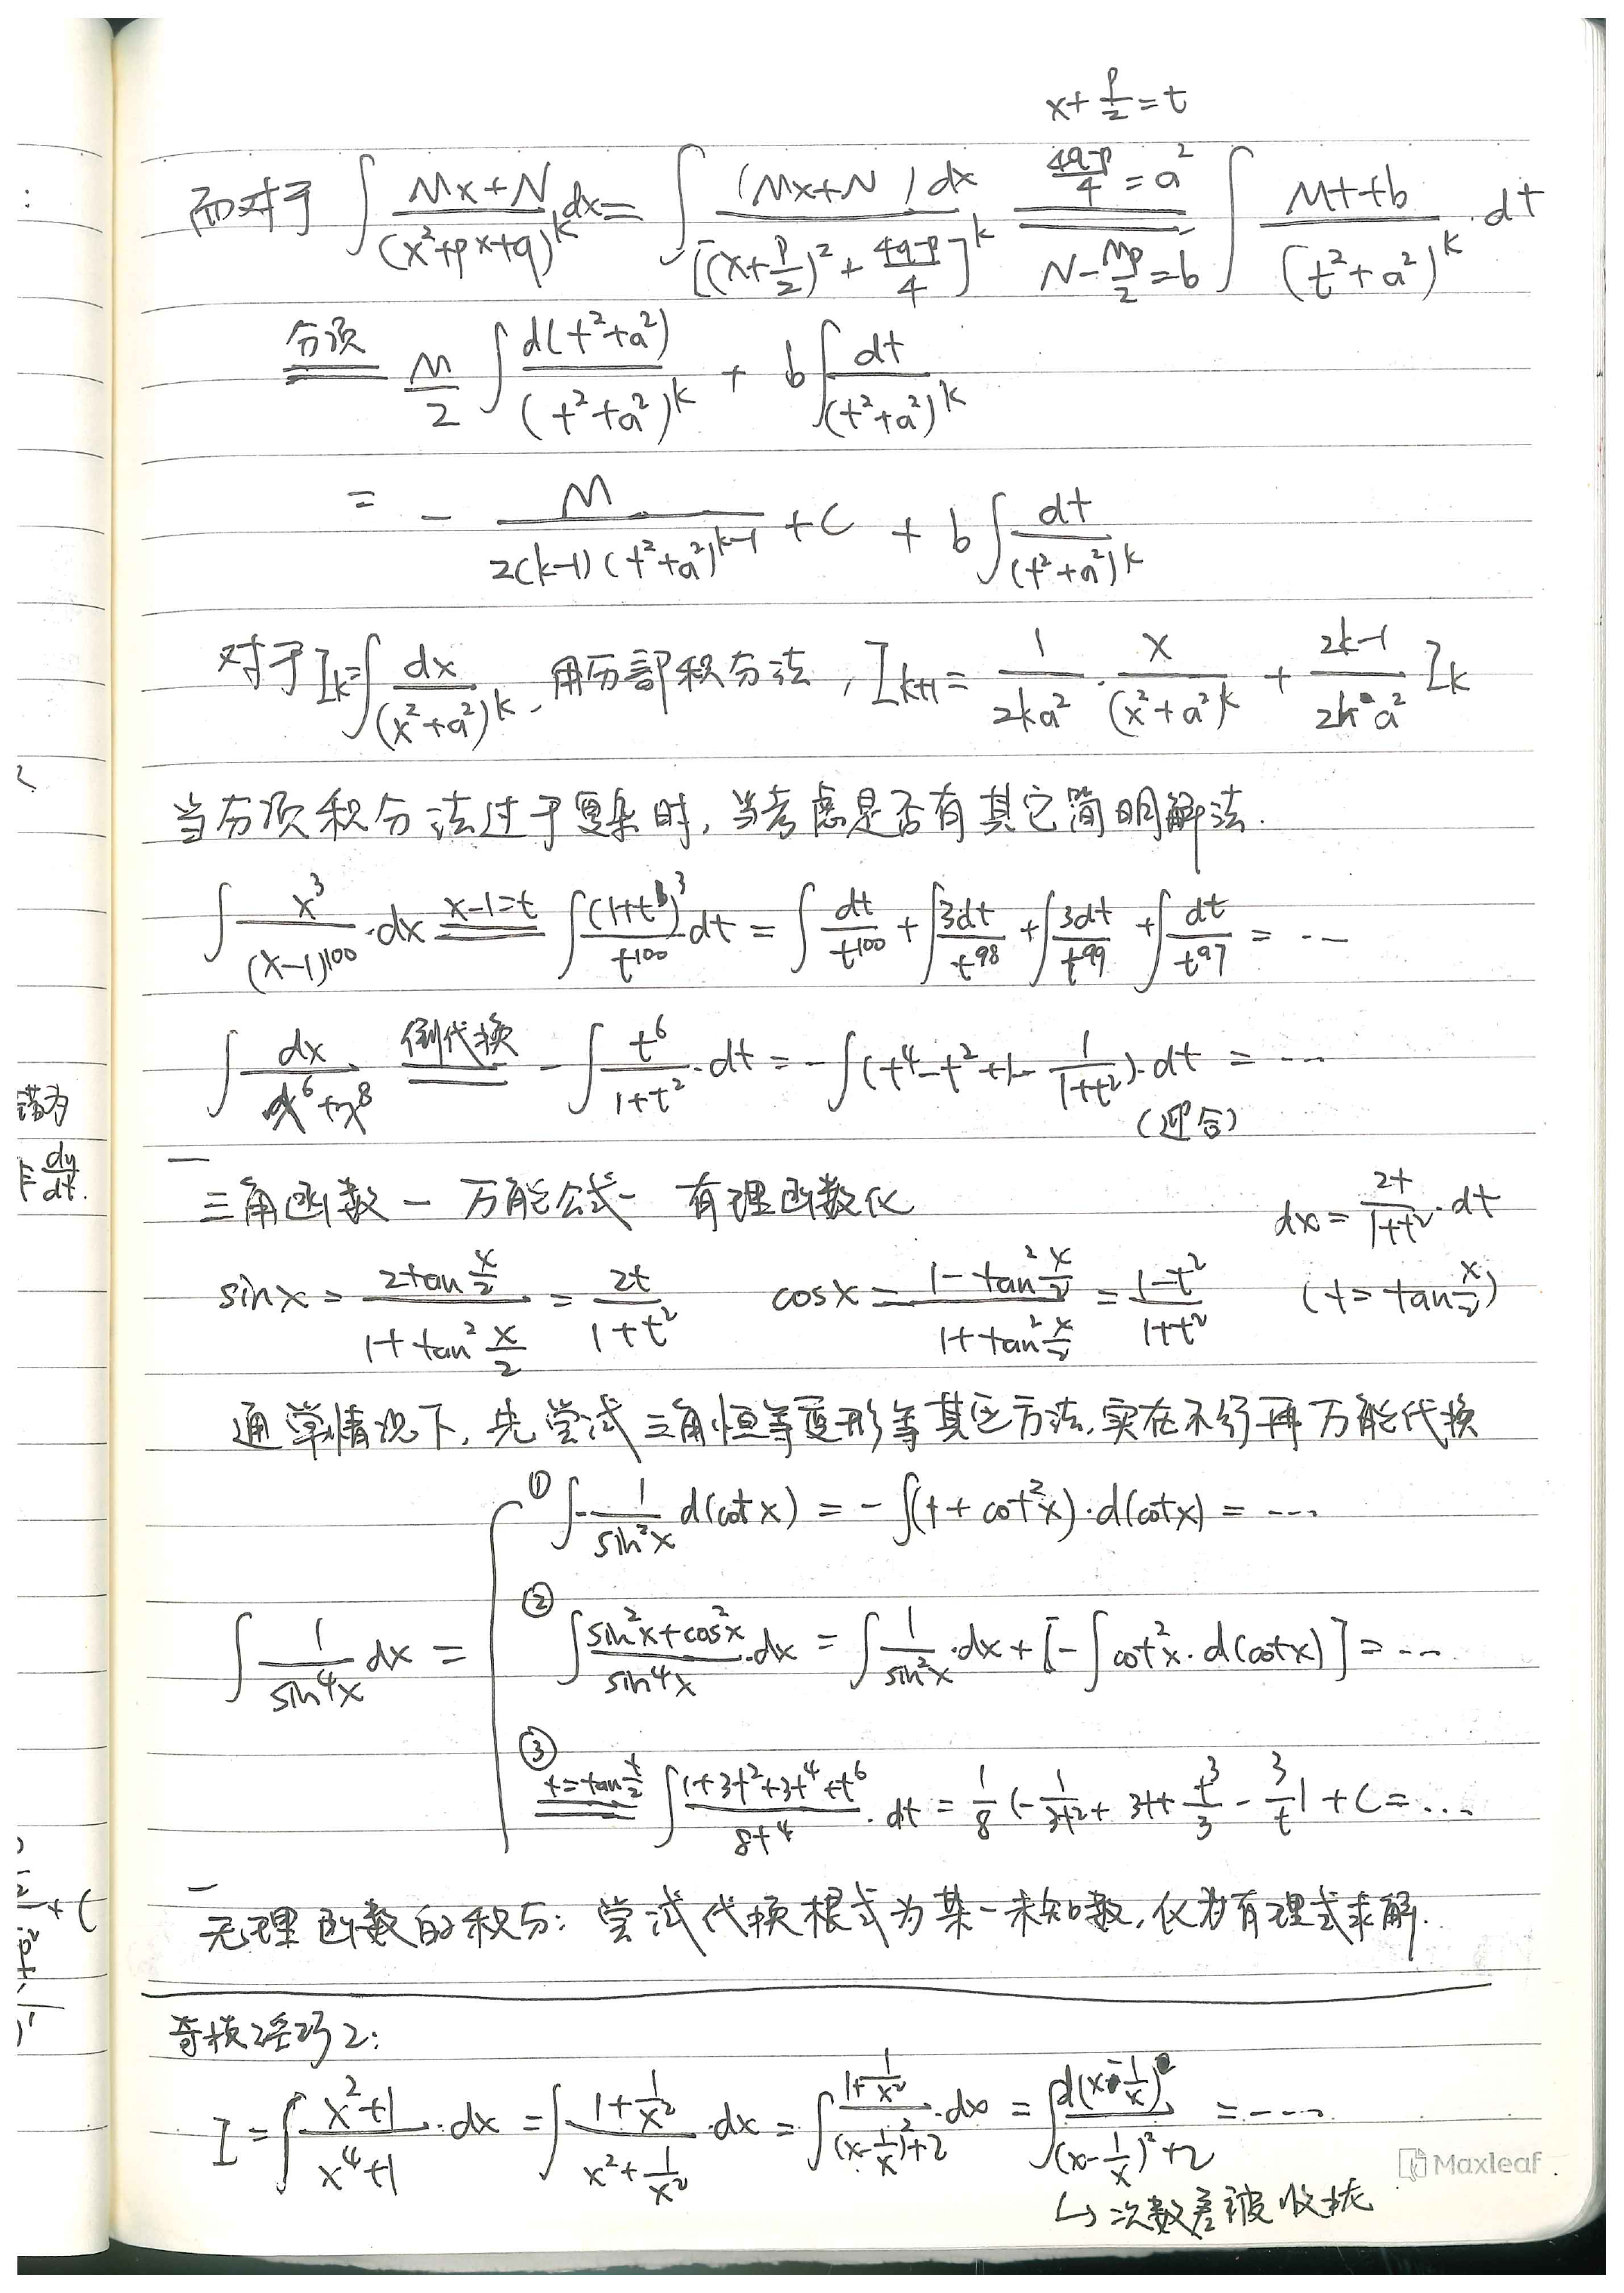 x+p/2=t
而对于 ∫ (Mx+N)/(x²+px+q)^k dx = ∫ (Mx+N)dx/[(x+p/2)²+(4q-p)/4]^k  (4q-p)/4=a²  N-Mp/2=b  ∫ (Mt+b)/(t²+a²)^k ·dt
分项 == M/2 ∫ d(t²+a²)/(t²+a²)^k + b∫ dt/(t²+a²)^k
= - M/(2(k-1)(t²+a²)^(k-1)) +C + b∫ dt/(t²+a²)^k
对于 I_k=∫ dx/(x²+a²)^k, 用分部积分法, I_(k+1) = 1/(2ka²) · x/(x²+a²)^k + (2k-1)/(2ka²) I_k
当分项积分法过于复杂时, 当考虑是否有其它简明解法.
∫ x³/(x-1)^100 ·dx  x-1=t ==  ∫ (1+t)³/t^100 dt = ∫ dt/t^100 + ∫ 3dt/t^98 + ∫ 3dt/t^99 + ∫ dt/t^97 = ...
∫ dx/(x⁶+x⁸)  倒代换 ==  -∫ t⁶/(1+t²) ·dt = -∫(t⁴-t²+1-1/(1+t²))·dt = ...
(迎合)
三角函数 - 万能公式 - 有理函数化
dx = 2t/(1+t²) ·dt
sinx = 2tan(x/2)/(1+tan²(x/2)) = 2t/(1+t²)  cosx = (1-tan²(x/2))/(1+tan²(x/2)) = (1-t²)/(1+t²)  (t=tan x/2)
通常情况下, 先尝试三角恒等变形等其它方法, 实在不行再万能代换
① ∫ -1/sin²x d(cotx) = -∫(1+cot²x)·d(cotx) = ...
∫ 1/sin⁴x dx = ② ∫ (sin²x+cos²x)/sin⁴x ·dx = ∫ 1/sin²x ·dx + [-∫cot²x·d(cotx)] = ...
③ t=tan x/2 ==  ∫ (1+3t²+3t⁴+t⁶)/8t⁴ ·dt = 1/8 (-1/3t² + 3t + t³/3 - 3/t) + C = ...
无理函数的积分: 尝试代换根式为某一未知数, 化为有理式求解.
奇技淫巧2:
I = ∫ (x²+1)/(x⁴+1) ·dx = ∫ (1+1/x²)/(x²+1/x²) ·dx = ∫ (1+1/x²)/((x-1/x)²+2) ·dx = ∫ d(x-1/x)/((x-1/x)²+2) = ....
↳次数差被收拢
Maxleaf.
错为
dy/dt.
+C